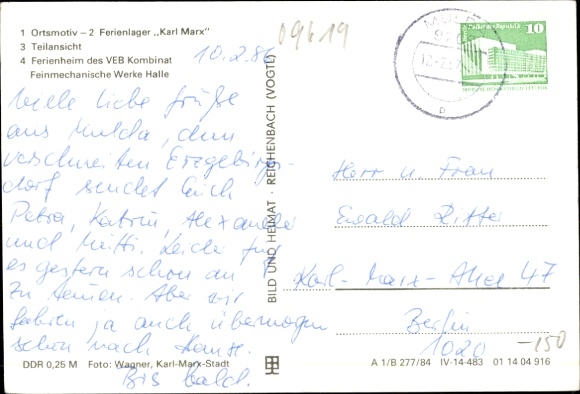 1 Ortsmotiv – 2 Ferienlager „Karl Marx"
3 Teilansicht
4 Ferienheim des VEB Kombinat
Feinmechanische Werke Halle
09619
10.2.86
Viele liebe Grüße
aus Mulda, dem
verschneiten Erzgebirgs-
dorf sendet Euch
Petra, Katrin, Alexander
und Mutti. Leider fing
es gestern schon an
zu tauen. Aber wir
fahren ja auch übermorgen
schon nach Hause.
Bis bald.
DDR 0,25 M Foto: Wagner, Karl-Marx-Stadt
BILD UND HEIMAT · REICHENBACH (VOGTL)
10
Herr u. Frau
Ewald Ritter
Karl-Marx-Allee 47
Berlin
1020
-150
A 1/B 277/84 IV-14-483 01 14 04 916